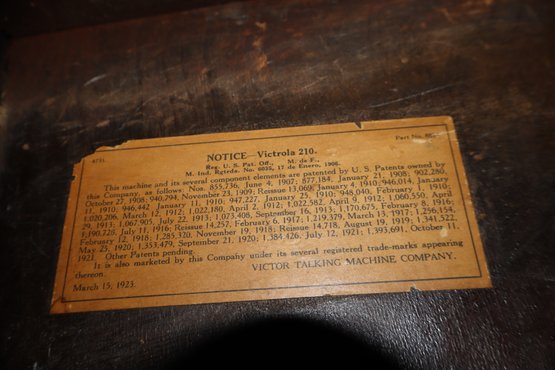 4731 Part No.
NOTICE—Victrola 210.
Reg. U. S. Pat. Off., M. de F.,
M. Ind. Rgtrda. No. 6035, 17 de Enero, 1908.
This machine and its several component elements are patented by U. S. Patents owned by
this Company, as follows: Nos. 855,736, June 4, 1907; 877,184, January 21, 1908; 902,280,
October 27, 1908; 940,794, November 23, 1909; Reissue 13,069, January 4, 1910; 946,014, January
11, 1910; 946,442 January 11, 1910; 947,227, January 25, 1910; 948,040, February 1, 1910;
1,020,206, March 12, 1912; 1,022,180, April 2, 1912; 1,022,582, April 9, 1912; 1,060,550, April
29, 1913; 1,067,905, July 22, 1913; 1,073,408, September 16, 1913; 1,170,675, February 8, 1916;
1,190,728, July 11, 1916; Reissue 14,257, February 6, 1917; 1,219,379, March 13, 1917; 1,256,154,
February 12, 1918; 1,285,330, November 19, 1918; Reissue 14,718, August 19, 1919; 1,341,522,
May 25, 1920; 1,353,479, September 21, 1920; 1,384,426, July 12, 1921; 1,393,691, October 11,
1921. Other Patents pending.
It is also marketed by this Company under its several registered trade-marks appearing
thereon. VICTOR TALKING MACHINE COMPANY.
March 15, 1923.